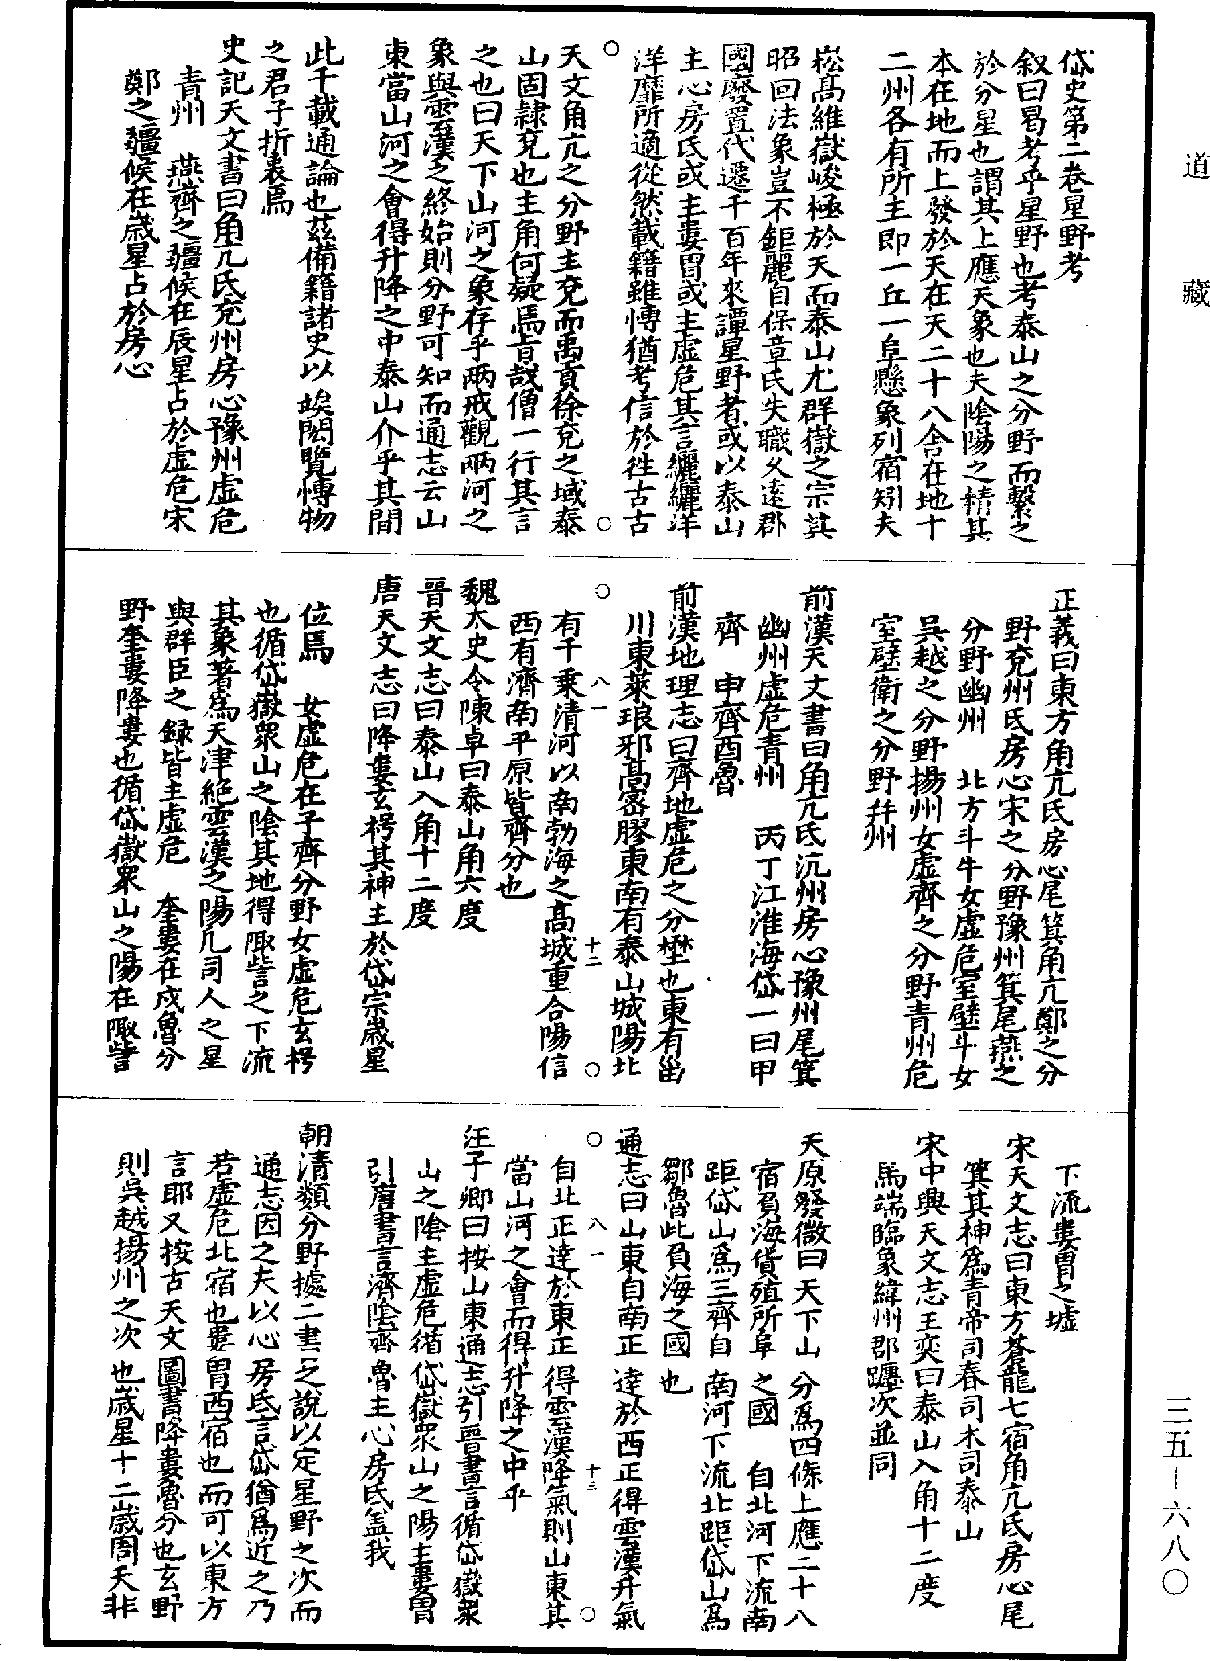 道藏
岱史第二卷星野考
叙曰曷考乎星野也考泰山之分野而繫之
於分星也謂其上應天象也夫陰陽之精其
本在地而上發於天在天二十八舍在地十
二州各有所主即一丘一阜懸象列宿矧夫
崧高維嶽峻極於天而泰山尤群嶽之宗其
昭回法象豈不鉅麗自保章氏失職久遠郡
國廢置代遷千百年來譚星野者或以泰山
主心房氐或主婁胃或主虛危其言纚纚洋
洋靡所適從然載籍雖博猶考信於徃古古
天文角亢之分野主兗而禹貢徐兗之域泰
山固隸兗也主角何疑焉旨哉僧一行其言
之也曰天下山河之象存乎兩戒觀兩河之
象與雲漢之終始則分野可知而通志云山
東當山河之會得升降之中泰山介乎其間
此千載通論也茲備籍諸史以竢閎覽博物
之君子折衷焉
史記天文書曰角亢氐兗州房心豫州虛危
青州　燕齊之疆候在辰星占於虛危宋
鄭之疆候在歲星占於房心
正義曰東方角亢氐房心尾箕角亢鄭之分
野兗州氐房心宋之分野豫州箕尾燕之
分野幽州　北方斗牛女虛危室壁斗女
吳越之分野揚州女虛齊之分野青州危
室壁衛之分野并州
前漢天文書曰角亢氐沆州房心豫州尾箕
幽州虛危青州　丙丁江淮海岱一曰甲
齊　申齊酉魯
前漢地理志曰齊地虛危之分壄也東有甾
川東萊琅邪高密膠東南有泰山城陽北
有千乘清河以南勃海之高城重合陽信
西有濟南平原皆齊分也
魏太史令陳卓曰泰山角六度
晉天文志曰泰山入角十二度
唐天文志曰降婁玄枵其神主於岱宗歲星
位焉　女虛危在子齊分野女虛危玄枵
也循岱嶽眾山之陰其地得陬訾之下流
其象著為天津絕雲漢之陽凡司人之星
與群臣之録皆主虛危　奎婁在戍魯分
野奎婁降婁也循岱嶽眾山之陽在陬訾
下流婁胃之墟
宋天文志曰東方蒼龍七宿角亢氐房心尾
箕其神為青帝司春司木司泰山
宋中興天文志王奕曰泰山入角十二度
馬端臨象緯州郡躔次並同
天原發微曰天下山分為四條上應二十八
宿負海貨殖所阜之國　自北河下流南
距岱山為三齊自南河下流北距岱山為
鄒魯此負海之國也
通志曰山東自南正達於西正得雲漢升氣
自北正達於東正得雲漢降氣則山東其
當山河之會而得升降之中乎
汪子卿曰按山東通志引晉書言循岱嶽眾
山之陰主虛危循岱嶽眾山之陽主婁胃
引唐書言濟陰齊魯主心房氐盖我
朝清類分野據二書之說以定星野之次而
通志因之夫以心房氐言岱猶為近之乃
若虛危北宿也婁胃西宿也而可以東方
言耶又按古天文圖書降婁魯分也玄野
則吳越揚州之次也歲星十二歲周天非
八一
十二
八一
十三
三五－六八〇